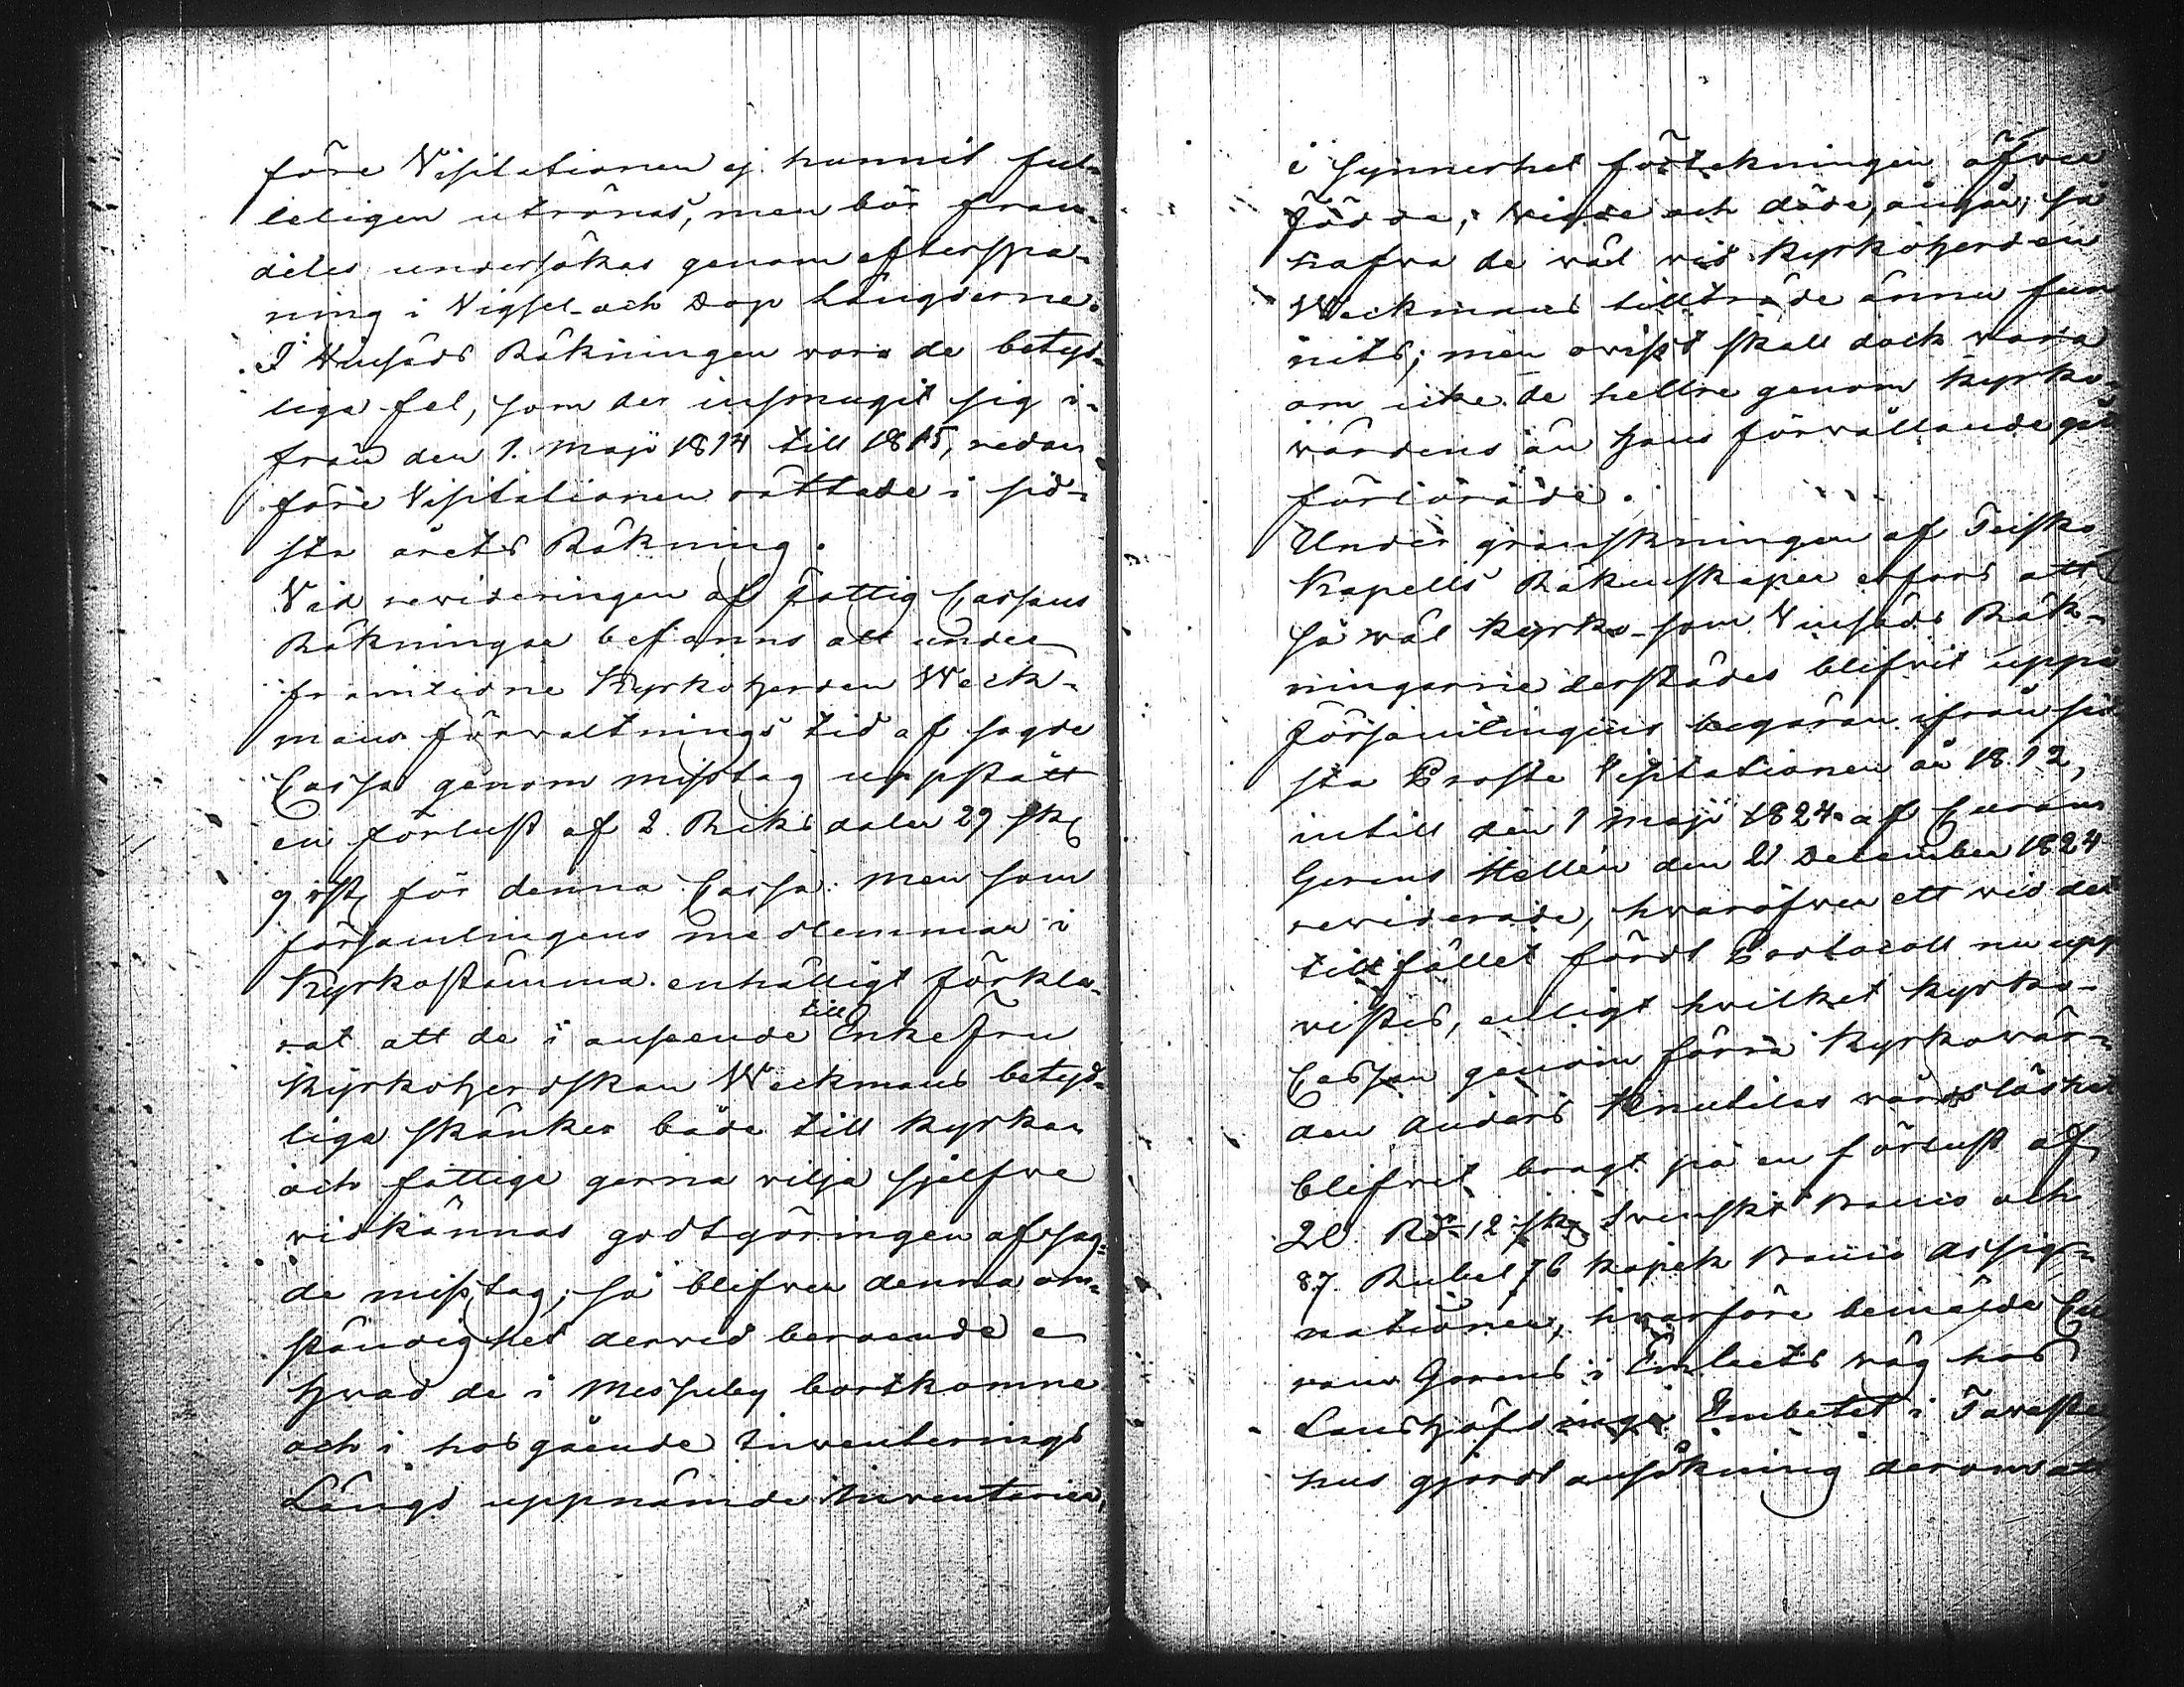 före Visitationen ej hunnit ful-
leligen utrönas, men bör fram-
deles undersökas genom efterspa-
ning i Vigsel- och Dop Längderne.
I Vinsäds Räkningen voro de betyd-
liga fel, som der insmugit sig i-
från den 1. Maji 1814 till 1815, redan
före Visitationen rättade i sid-
sta årets Räkning.
Vid revideringen af Fattig Cassans
Räkningar befanns att under
framlidne Kyrkoherden Weck-
mans förvaltnings tid af sagde
Cassa genom misstag uppstått
en förlust af 2. Riksdaler 29 sk
9 rst för denna Cassa: men som
församlingens medlemmar i
Kyrkostämma enhälligt förkla-
rat att de i anseende till Enkefru
Kyrkoherdskan Weckmans betyd-
liga skänker både till kyrkan
och fattige gerna vilja sjelfve
vidkännas godtgöringen af sag-
de misstag; så blifver denna om-
ständighet dervid beroende
Hvad de i Messuby bortkomne
och i hosgående Inventerings
Längd uppnämde Inventarier,
i synnerhet förtekningen öfver
Födde, Vigde och döde, angår; så
hafva de väl vid Kyrkoherden
Weckmans tillträde ännu fun-
nits; men ovisst skall dock vara
om icke de hellre genom Kyrko-
värdens än Hans förvållande gått
förlorade.
Under granskningen af Teisko
Kapells Räkenskaper erfors att
så väl Kyrko- som Vinsäds Räk-
ningarne derstädes blifvit uppå
Församlingens begäran ifrån sid-
sta Proste Visitationen år 1812,
intill den 1 Maji 1824 af Curam
Gerens Hellén den 21 December 1824
reviderade, hvaröfver ett vid det
tillfället fördt Protocoll nu upp
vistes, enligt hvilket Kyrko-
Cassan genom förra Kyrkovär-
den Anders Knutilas vårdslöshet
blifvit bragt på en förlust af
20 Rd 12 sk Svenskt Banco och
87. Rubel 76 Kopek Banco Assig-
nationer, hvarföre bemälde Cu
ram Gerens i Embets väg hos
Landshöfdinge Embetet i Tavaste
hus gjordt ansökning derom att